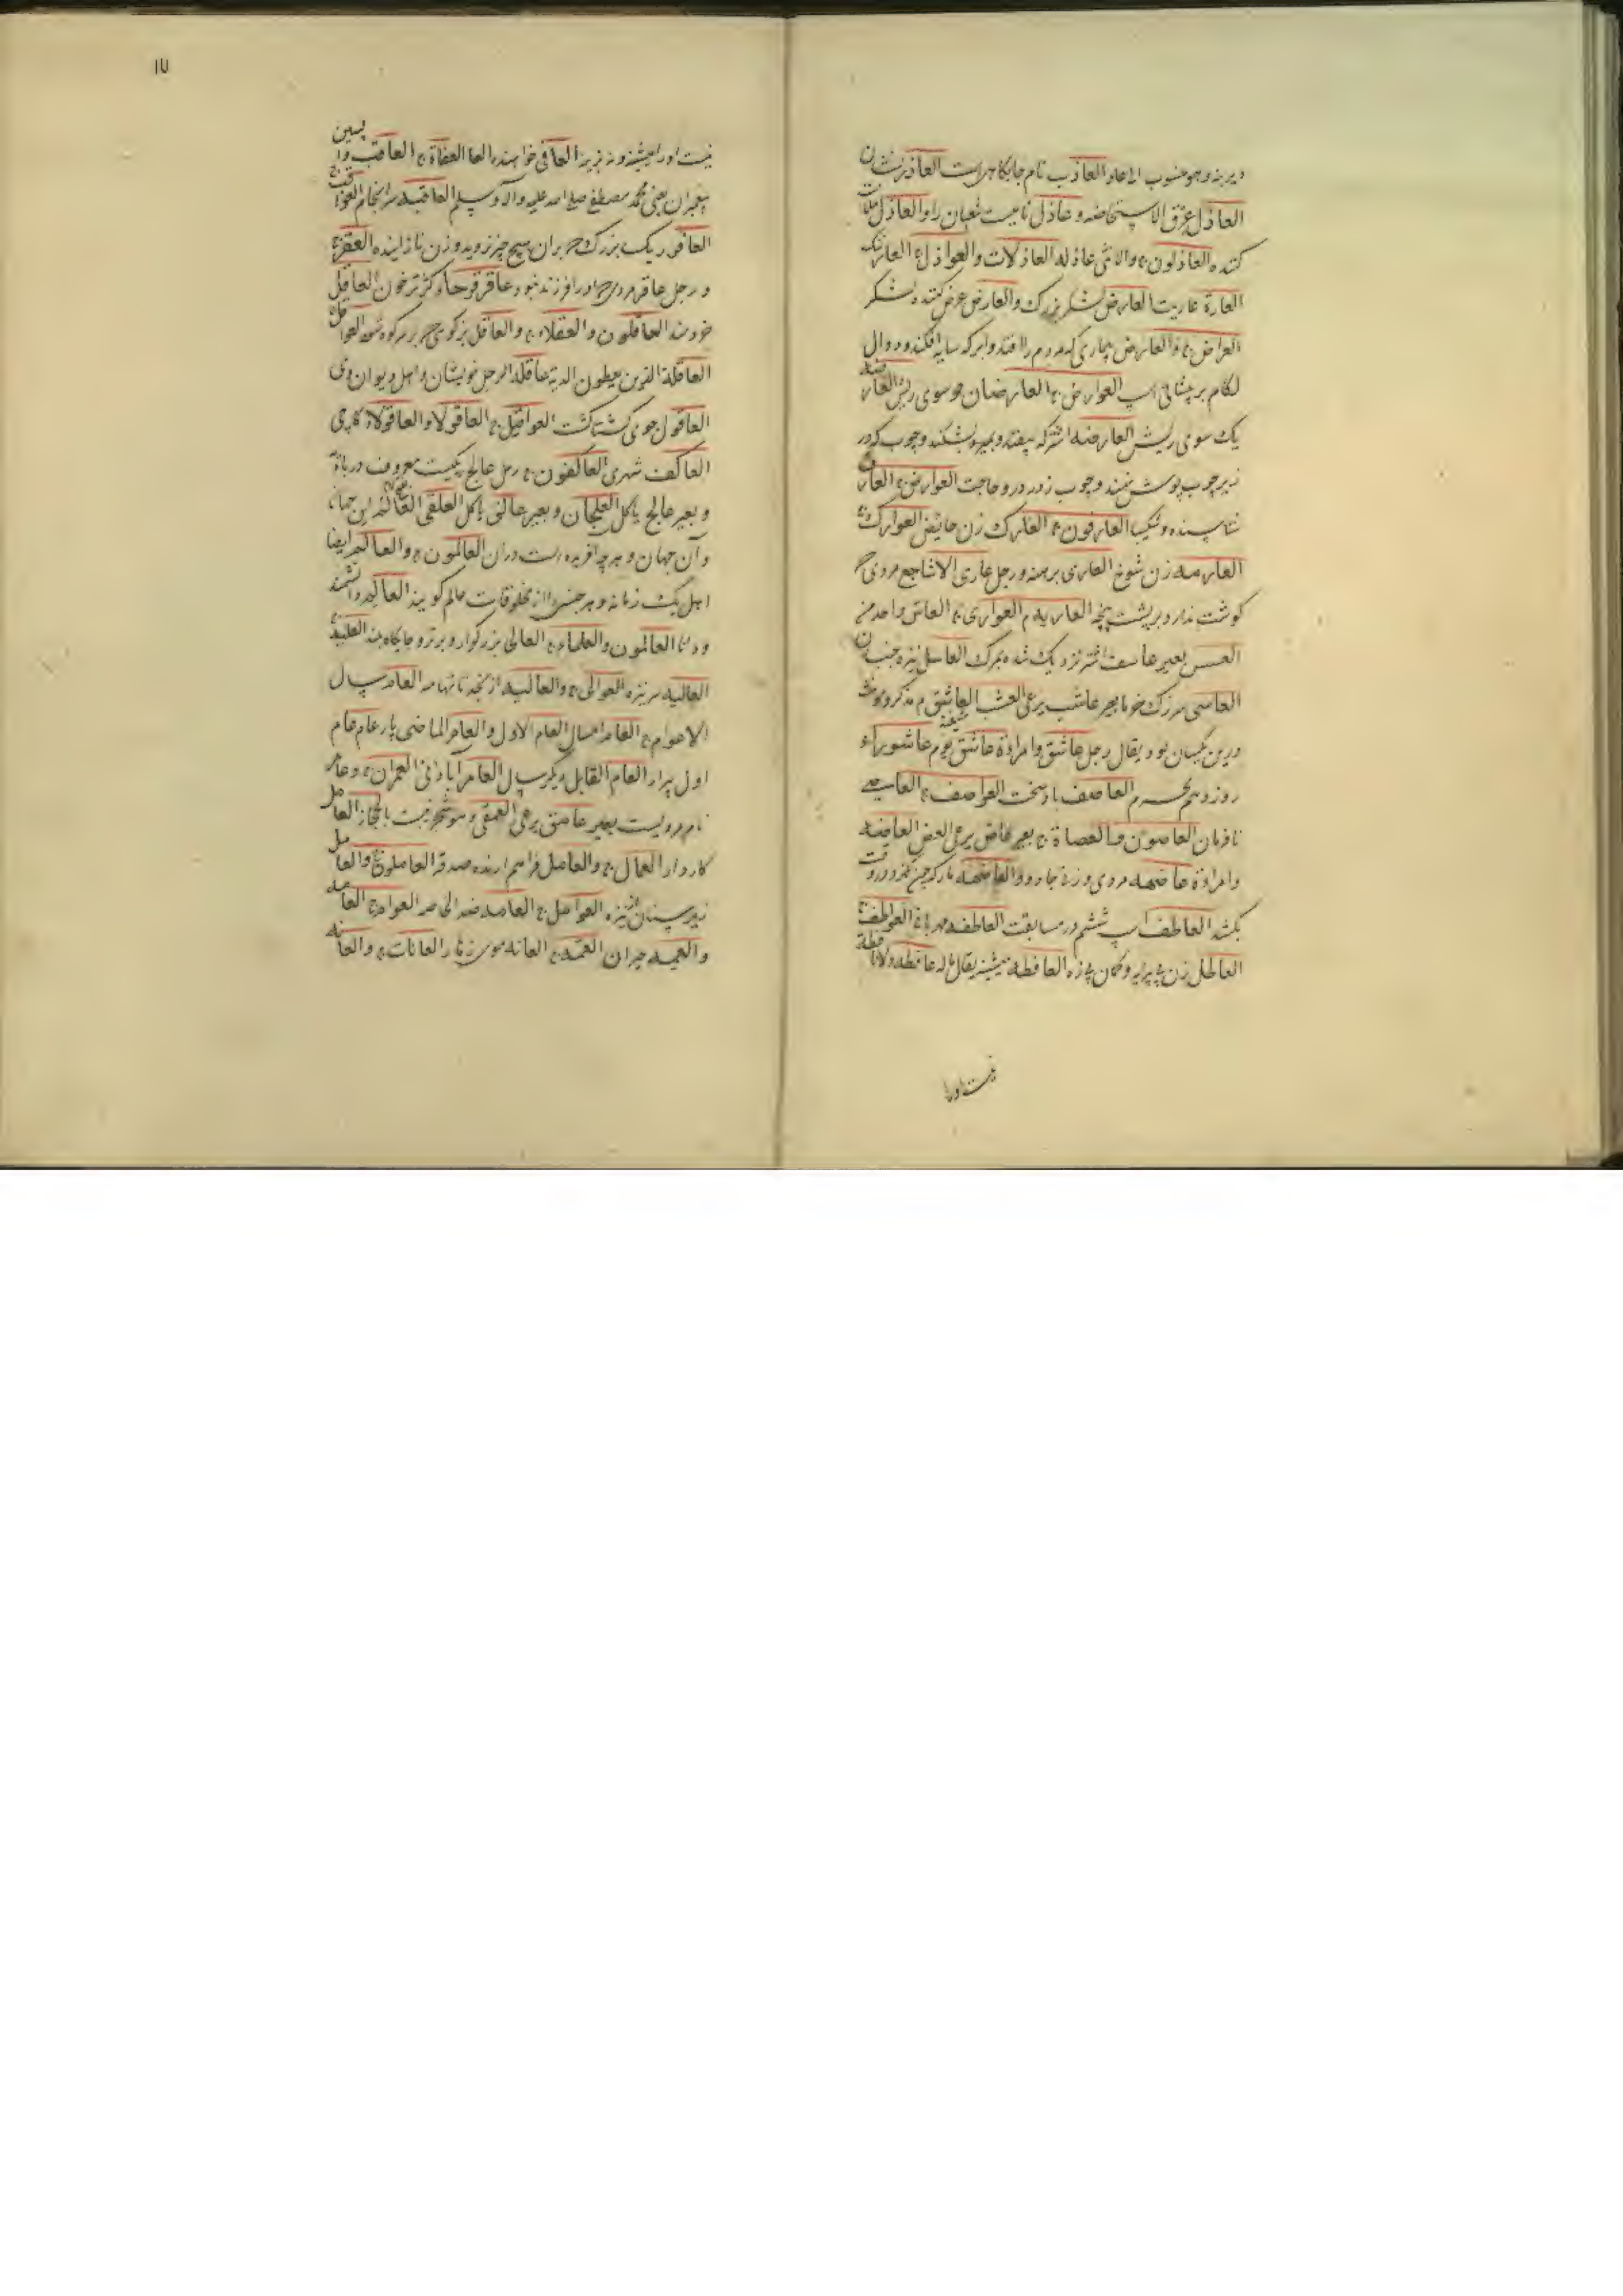 دیرینه و هو منسوب الی عاد العاذب نام جایگاهی است العاذر نشان
العاذل عرق الاستحاضه و عاذل نامیست شعبان را و العاذل ملامت
کننده العاذلون ج والانثی عاذله العاذلات والعواذل ج
العارة عاریت العارض لشکر بزرگ والعارض عرض کننده لشکر
العراض ج والعارض بیماری که مردم را افتد و ابر که سایه افکند و دوال
لگام بر پیشانی اسپ العوارض ج العارضان دو سوی ریش العارضة
یک سوی ریش العارضه اشتر که بیفتد و بمیرد و بشکند و چوب که در
زبر چوب پوشش نهند و چوب زور در و حاجت العوارض ج العارف
شناسنده و شکیبا العارفون ج العارک زن حایض العوارک ج
العارمه زن شوخ العاری برهنه و رجل عاری الاشاجع مردی که
گوشت ندارد بر پشت پنجه العاریه م العواری ج العاس واحد من
العسس بعیر عاسف اشتر نزدیک شده بمرگ العاسل نیزه جنبان
العاسی بعیر عاشب یرعی العشب العاشق م مذکر و مونث
درین یکسان بود یقال رجل عاشق وامراة عاشق یوم عاشوراء
روز دهم محرم العاصف باد سخت العواصف ج العاصی
نافرمان العاصون والعصاة ج بعیر عاض یرعی العض العاضه
وامراة عاضهه مردی و زنی جادو والعاضهه مار که چون بگزد در وقت
بکشد العاطف اسپ ششم در مسابقت العاطفه مهربانی العواطف ج
العاطل زن بی پیرایه و کمان بی زه العافطه میش یقال ماله عافطه ولا نافطة
نیست اورا
نیست اورا میش و نه بز العافی خواهنده العفاة ج العاقب واپسین
پیغمبران یعنی محمد مصطفی صلی الله علیه وآله وسلم العاقبه سرانجام العواقب ج
العاقر ریگ بزرگ که بر آن هیچ چیز نروید و زن نازاینده العقر ج
و رجل عاقر مردی که اورا فرزند نبود عاقرقرحا کژ ترخون العاقل
خردمند العاقلون والعقلاء ج والعاقل بزکوهی که بر سر کوه شود العواقل ج
العاقلة الذین یعطون الدیة عاقلة الرجل خویشان و اهل دیوان وی
العاقول جوی کشتاکشت العواقیل ج العاقولا والعاقولاة
العاکف شهری العاکفون ج رمل عالج ریگیست معروف در بادیه
و بعیر عالج یاکل العلجان و بعیر عالق یاکل العلقی العالم این جهان
و آن جهان و هرچه آفریده است در آن العالمون ج والعالم ایضا
اهل یک زمانه و هر جنسی را از مخلوقات عالم گویند العالم دانشمند
و دانا العالمون والعلماء ج العالی بزرگوار و برتر و جایگاه بلند العلیة ج
العالیه سر نیزه العوالی ج والعالیه از نجد تا تهامه العام سال
الاعوام ج العام امسال العام الاول والعام الماضی پار عام عام
اول پیرار العام القابل دیگر سال العامر آبادانی العمران ج و عامر
نام مردیست بعیر عامق یرعی العمقی و هو شجر نبت بالحجاز العامل
کاردار العمال ج والعامل فراهم آرنده صدقه العاملون ج والعامل
زیر سنان از نیزه العوامل ج العامه ضد الخاصه العوام ج العامه
والعمه حیران العمه ج العانه موی زهار العانات ج والعانه